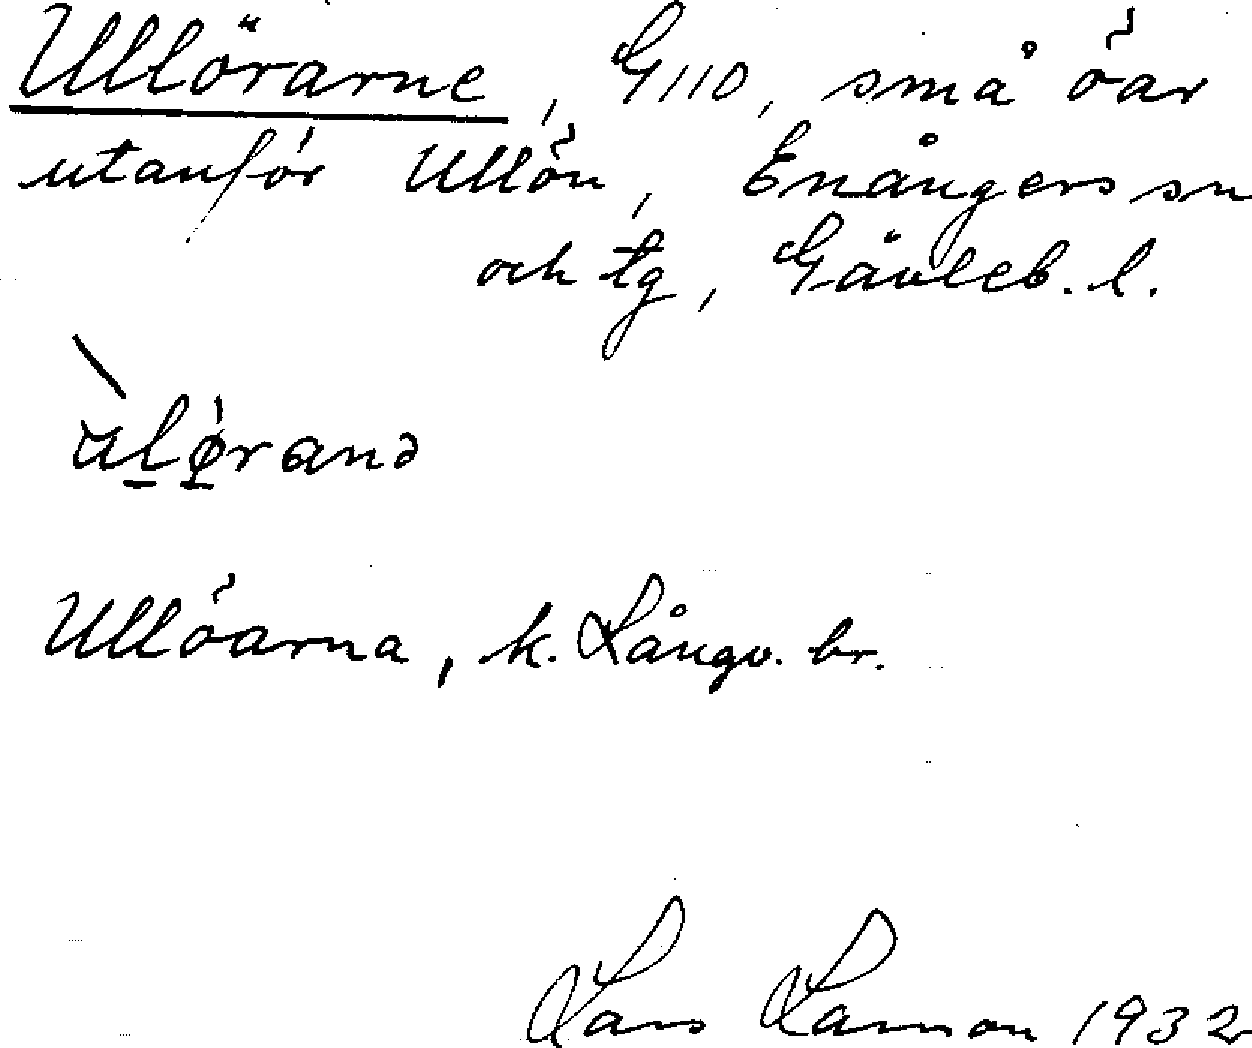 Ullörarne, G110, små öar
utanför Ullön, Enångers sn
och tg, Gävleb. l.
Ullöarna, k. Långv. br.
Lars Larsson 1932